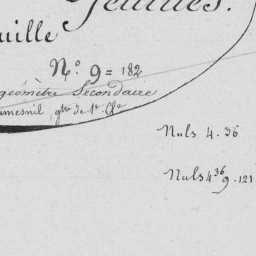 Feuilles.
uille
N.º 9 = 182
géomètre Secondaire
umesnil, gtre de 1e Cle
Nuls 4.36
Nuls 4 36 9.121